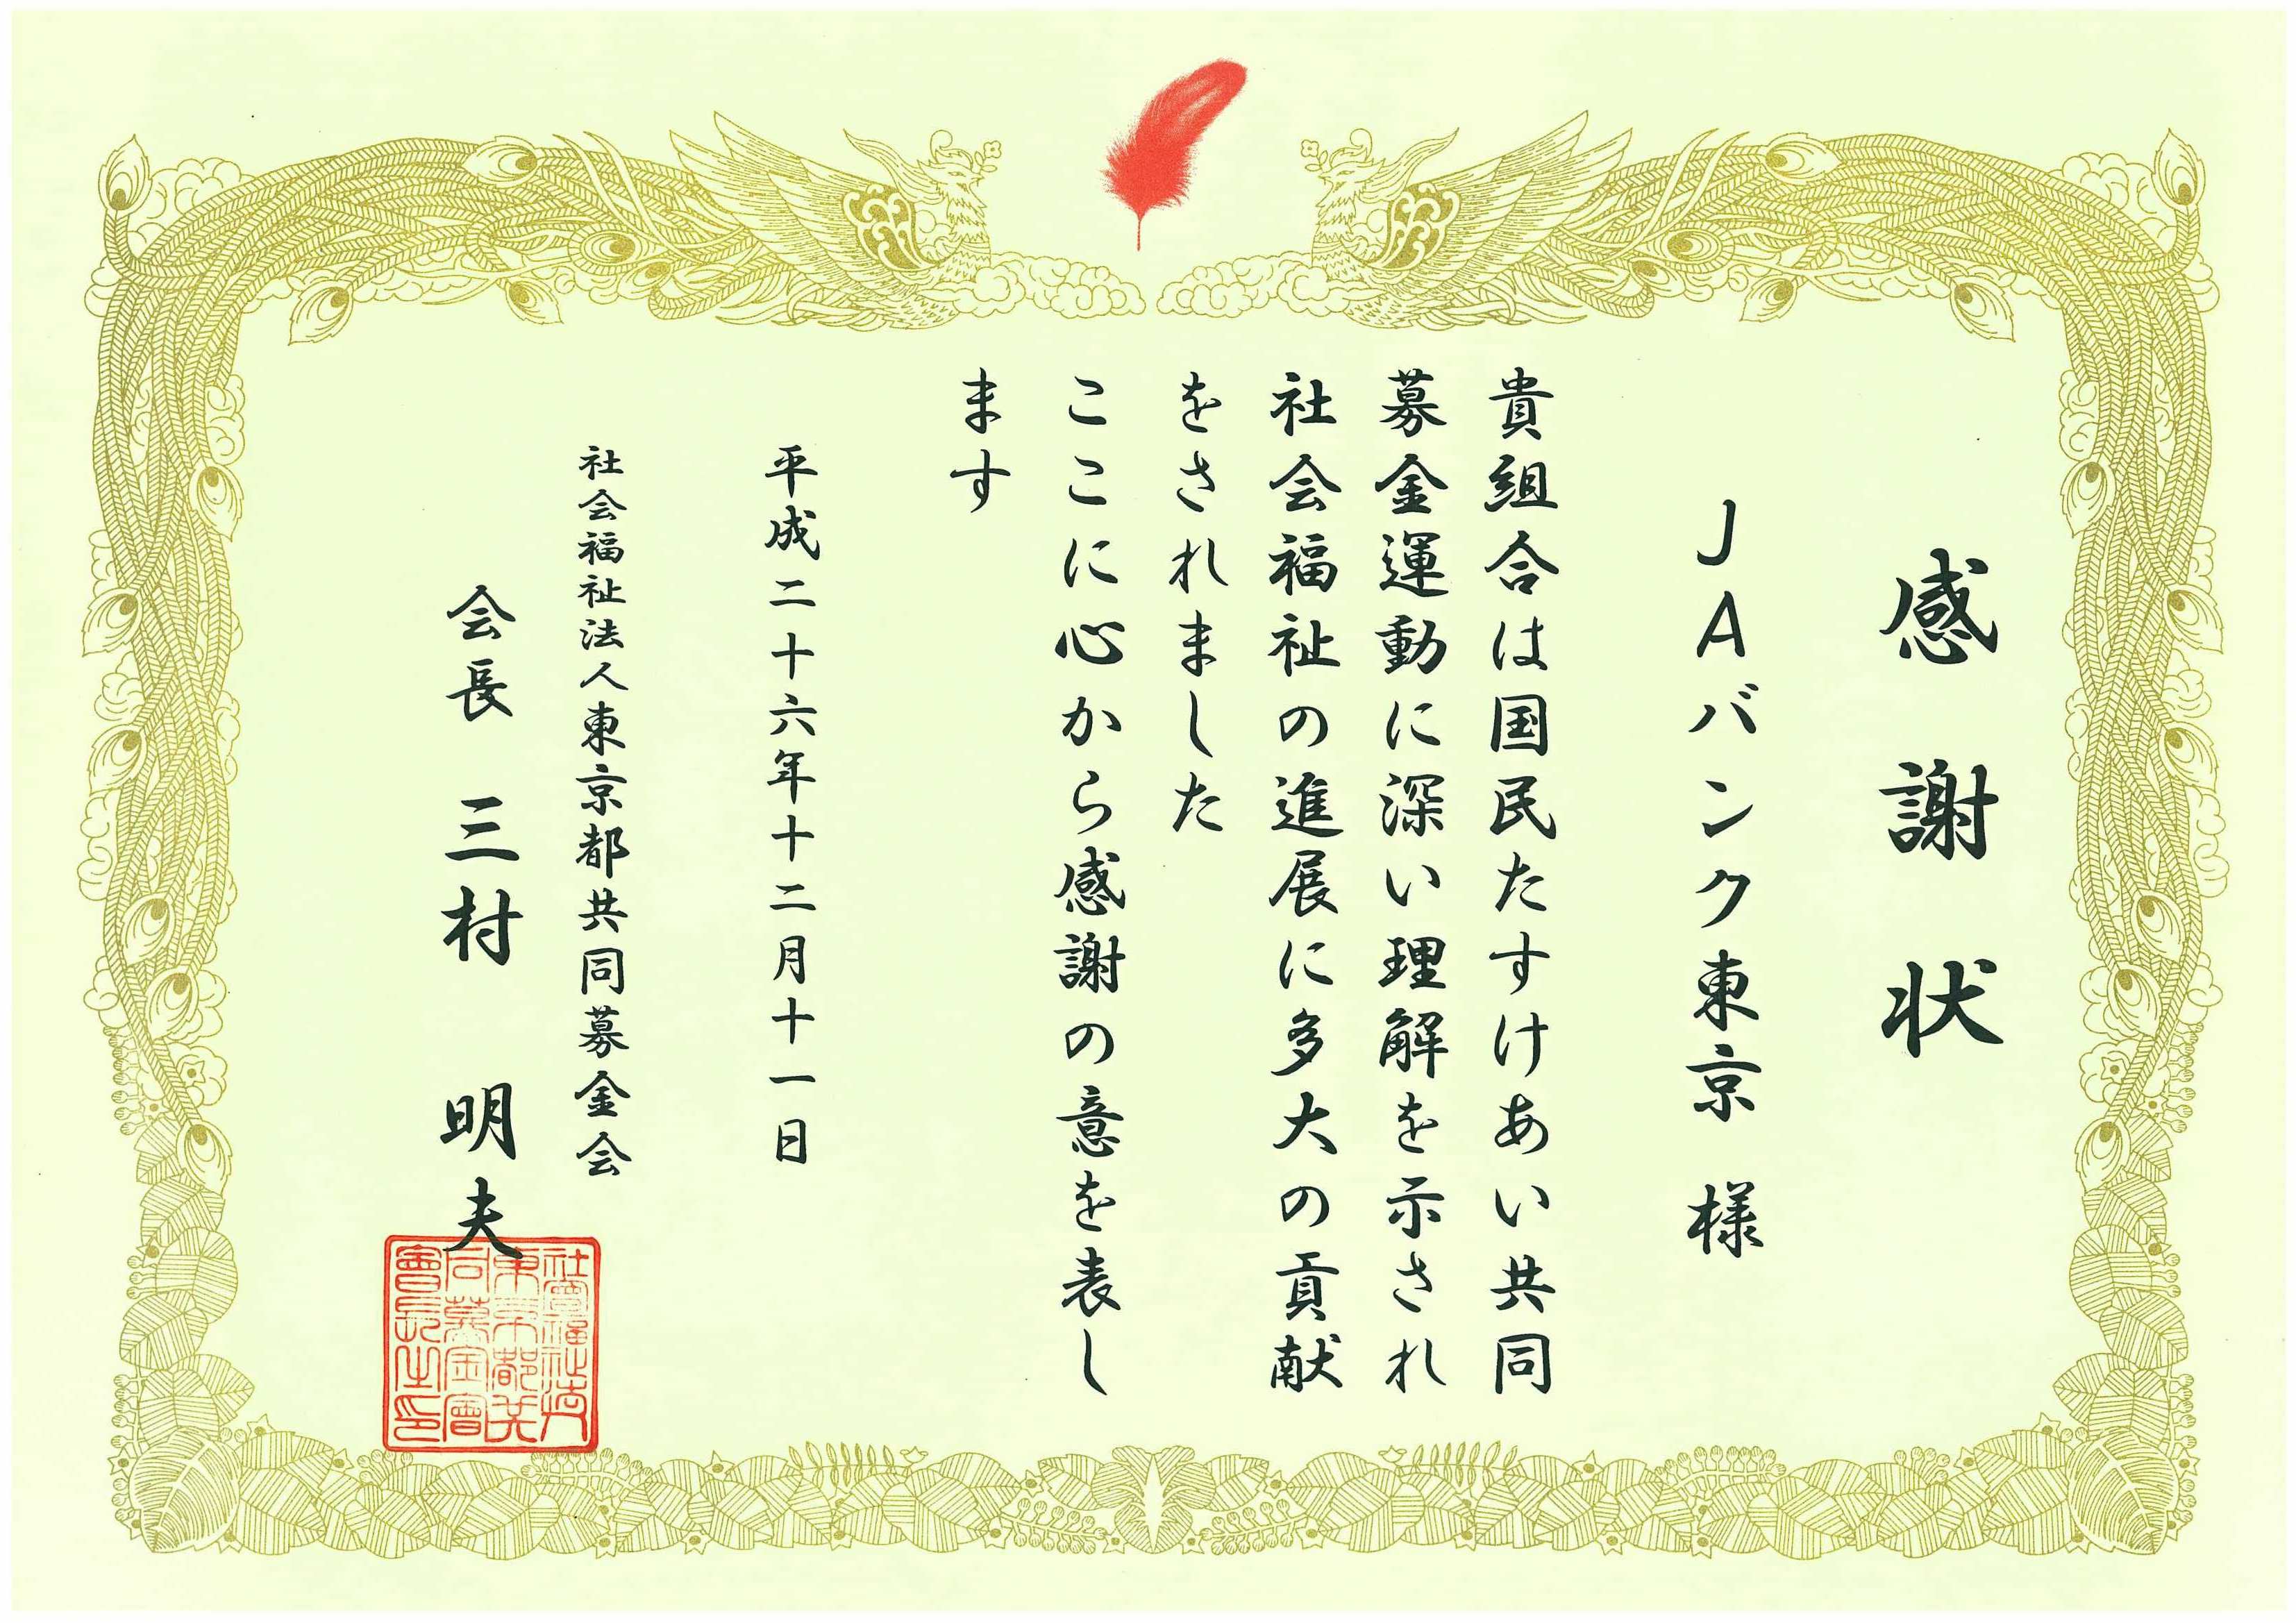 感謝状
JAバンク東京 様
貴組合は国民たすけあい共同
募金運動に深い理解を示され
社会福祉の進展に多大の貢献
をされました
ここに心から感謝の意を表し
ます
平成二十六年十二月十一日
社会福祉法人東京都共同募金会
会長 三村 明夫
社會福祉法
人東京都共
同募金會
會長之印